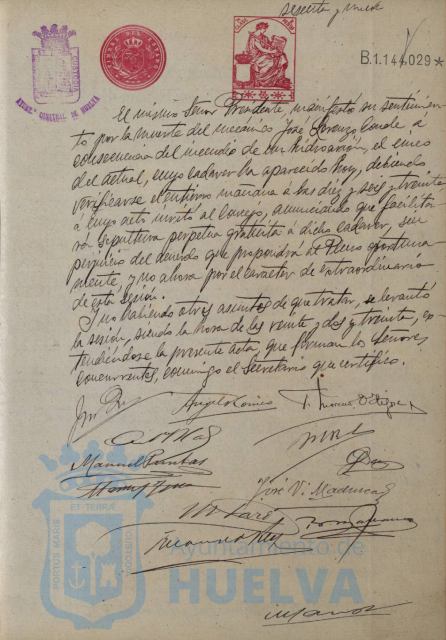 sesenta y nueve
B.1.144,029*
AYUNT. CONSTNAL DE HUELVA
El mismo Señor Presidente, manifestó su sentimien-
to por la muerte del mecánico José Lorenzo Conde á
consecuencia del incendio de un hidroavión, el cinco
del actual, cuyo cadaver ha aparecido hoy, debiendo
verificarse el entierro mañana á las diez y seis y treinta
á cuyo acto invitó al Concejo, anunciando que facilita-
rá sepultura perpetua gratuita á dicho cadaver, sin
perjuicio del acuerdo que propondrá al Pleno oportuna
mente, y no ahora por el carácter de extraordinario
de esta sesión.
Y no habiendo otros asuntos de que tratar, se levantó
la sesión, siendo la hora de las veinte, dos y treinta, ex-
tendiéndose la presente acta que firman los Señores
concurrentes, conmigo el Secretario que certifico.
José V. Maduro
PORTUS MARIS ET TERRÆ CUSTODIA
Ayuntamiento de
HUELVA